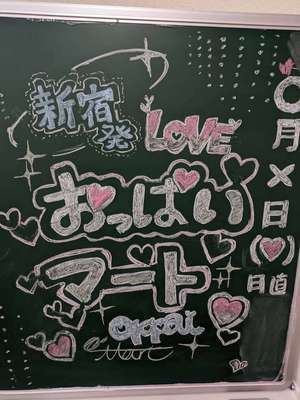 新宿発
LOVE
おっぱい
マート
oppai
Mart
○月×日(♡)
日直